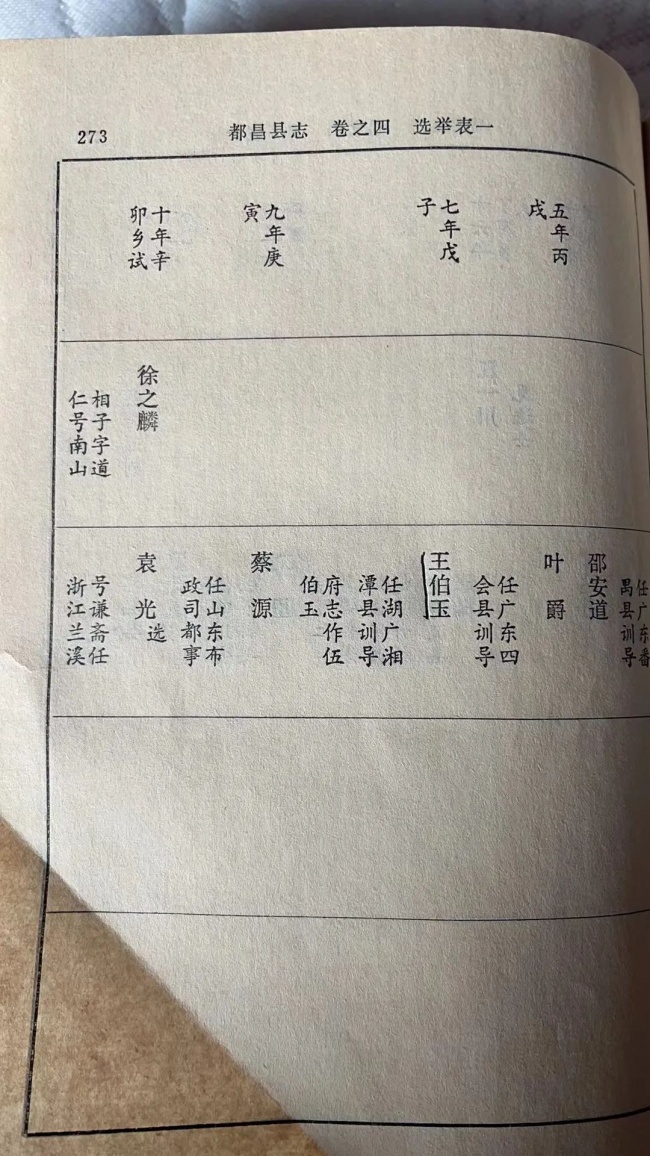 273
都昌县志 卷之四 选举表一
五年丙
戌
七年戊
子
九年庚
寅
十年辛
卯乡试
徐之麟
相子字道
仁号南山
邵安道
任广东番
禺县训导
叶爵
任广东四
会县训导
王伯玉
任湖广湘
潭县训导
府志作伍
伯玉
蔡源
任山东布
政司都事
袁光选
号谦斋任
浙江兰溪